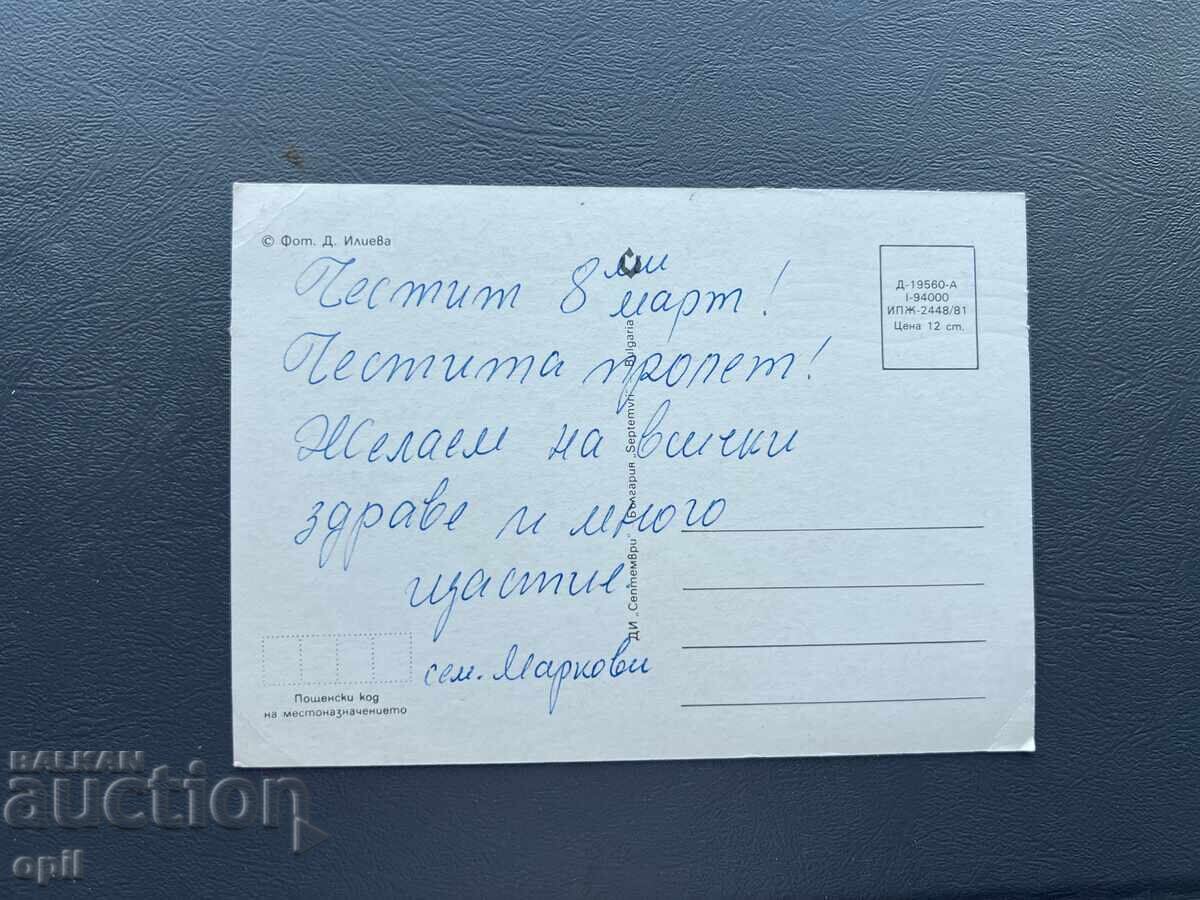 © Фот. Д. Илиева
Честит 8ми март!
Честита пролет!
Желаем на всички
здраве и много
щастие.
сем. Маркови
Д-19560-А
I-94000
ИПЖ-2448/81
Цена 12 ст.
ДИ „Септември" България „Septemvri" Bulgaria
Пощенски код
на местоназначението
BALKAN
auction
opil